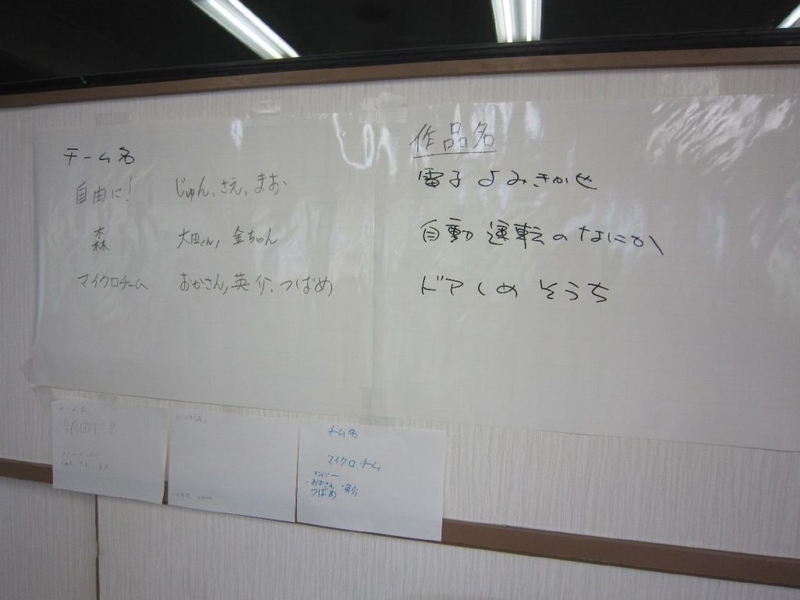 チーム名
自由に! じゅん,さえ,まお
森 大田くん,金ちゃん
マイクロチーム おかさん,英介,つばめ
作品名
電子よみきかせ
自動運転のなにか
ドアしめそうち
チーム名
自由に!
チーム名
マイクロチーム
メンバー
・おかさん ・英介
つばめ